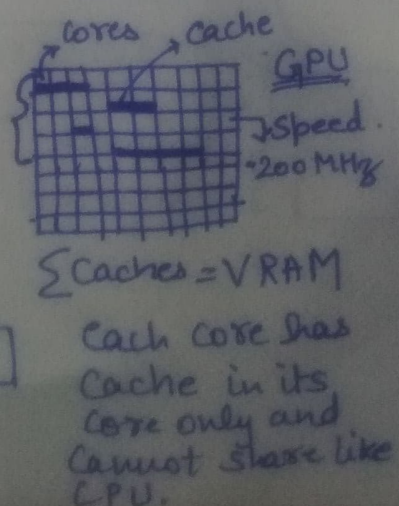 cores
cache
GPU
Speed.
~200 MHz
Σ Caches = VRAM
Each core has
Cache in its
core only and
Cannot share like
CPU.